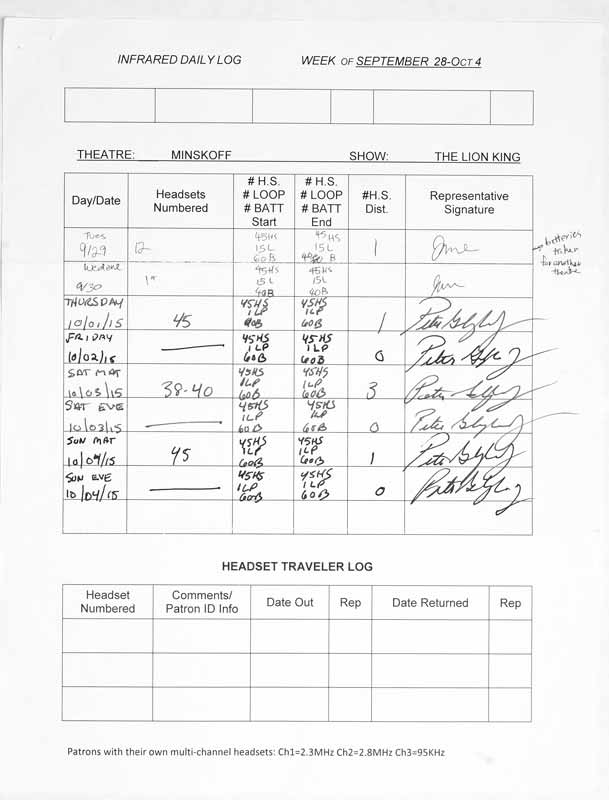 INFRARED DAILY LOG WEEK OF SEPTEMBER 28-OCT 4
THEATRE: MINSKOFF SHOW: THE LION KING
Day/Date
Headsets
Numbered
# H.S.
# LOOP
# BATT
Start
# H.S.
# LOOP
# BATT
End
#H.S.
Dist.
Representative
Signature
Tues
9/29
12
45HS
15L
60B
45HS
15L
B
1
June
batteries
taken
for another
theatre
9/30
45HS
15L
60B
45HS
15L
60B
THURSDAY
10/01/15
45
45HS
1LP
60B
45HS
1LP
60B
1
Peter
FRIDAY
10/02/15
45HS
1LP
60B
45HS
1LP
60B
0
Peter
SAT MAT
10/03/15
38-40
45HS
1LP
60B
45HS
1LP
60B
3
Peter
SAT EVE
10/03/15
45HS
1LP
60B
45HS
1LP
60B
0
Peter
SUN MAT
10/04/15
45
45HS
1LP
60B
45HS
1LP
60B
1
Peter
SUN EVE
10/04/15
45HS
1LP
60B
45HS
1LP
60B
0
Peter
HEADSET TRAVELER LOG
Headset
Numbered
Comments/
Patron ID Info
Date Out
Rep
Date Returned
Rep
Patrons with their own multi-channel headsets: Ch1=2.3MHz Ch2=2.8MHz Ch3=95KHz